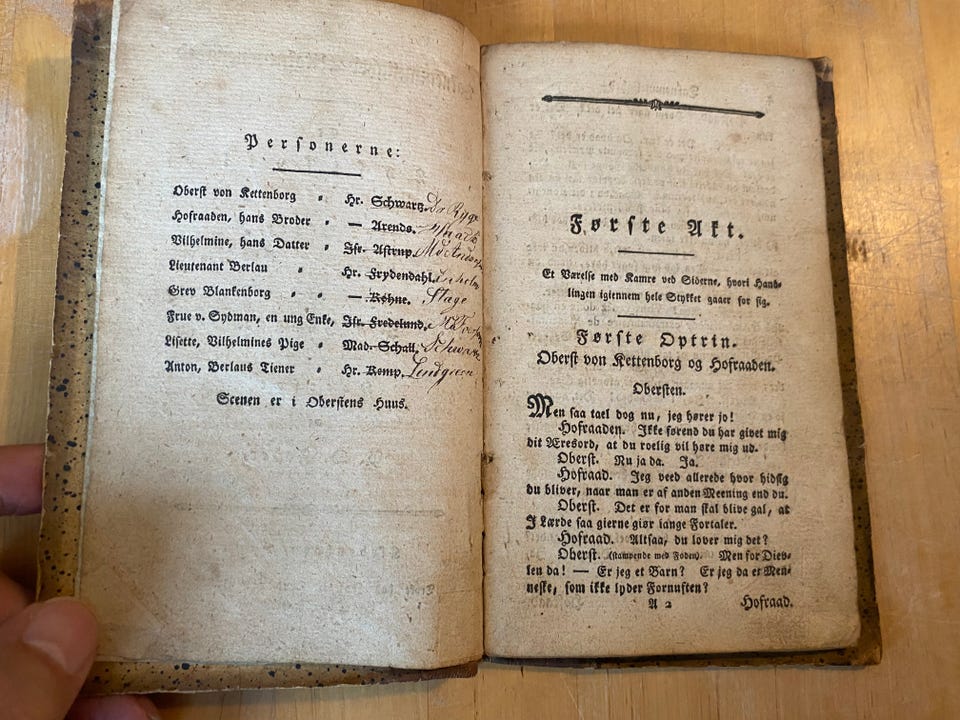 Personerne:
Oberst von Kettenborg " Hr. Schwartz. Dr Ryge
Hofraaden, hans Broder " — Arends.
Vilhelmine, hans Datter " Jfr. Astrup.
Lieutenant Berlau " Hr. Frydendahl.
Grev Blankenborg " " — Køhne. Stage
Frue v. Sydman, en ung Enke, Jfr. Fredelund.
Lisette, Vilhelmines Pige " Mad. Schall.
Anton, Berlaus Tiener " Hr. Komp. Lindgreen
Scenen er i Oberstens Huus.
Første Akt.
Et Værelse med Kamre ved Siderne, hvori Hand-
lingen igiennem hele Stykket gaaer for sig.
Første Optrin.
Oberst von Kettenborg og Hofraaden.
Obersten.
Men saa tael dog nu, jeg hører jo!
Hofraaden. Ikke førend du har givet mig
dit Æresord, at du roelig vil høre mig ud.
Oberst. Nu ja da. Ja.
Hofraad. Jeg veed allerede hvor hidsig
du bliver, naar man er af anden Meening end du.
Oberst. Det er for man skal blive gal, at
I Lærde saa gierne giør lange Fortaler.
Hofraad. Altsaa, du lover mig det?
Oberst. (stampende med Foden). Men for Diev-
len da! — Er jeg et Barn? Er jeg da et Men-
neske, som ikke lyder Fornuften?
A 2 Hofraad.